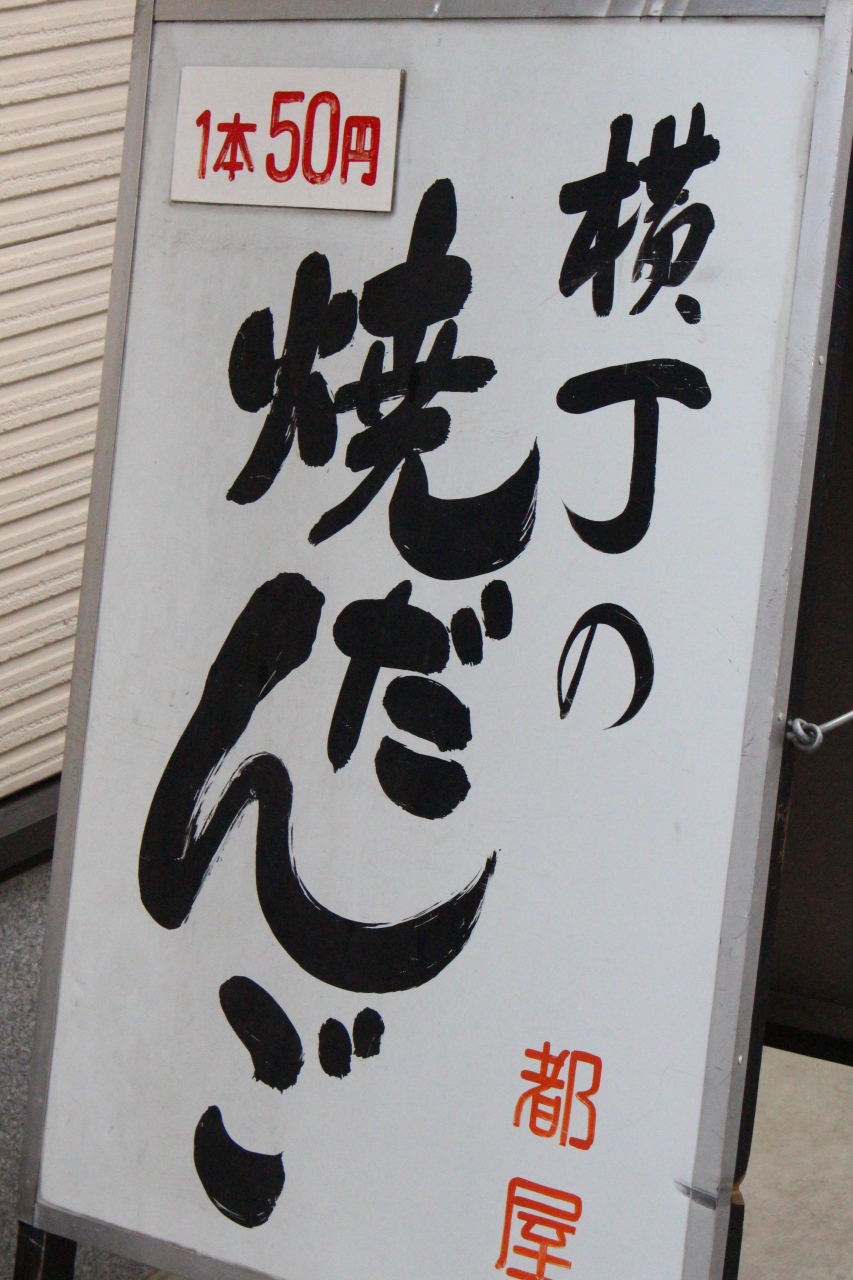 横丁の
焼だんご
1本50円
都屋